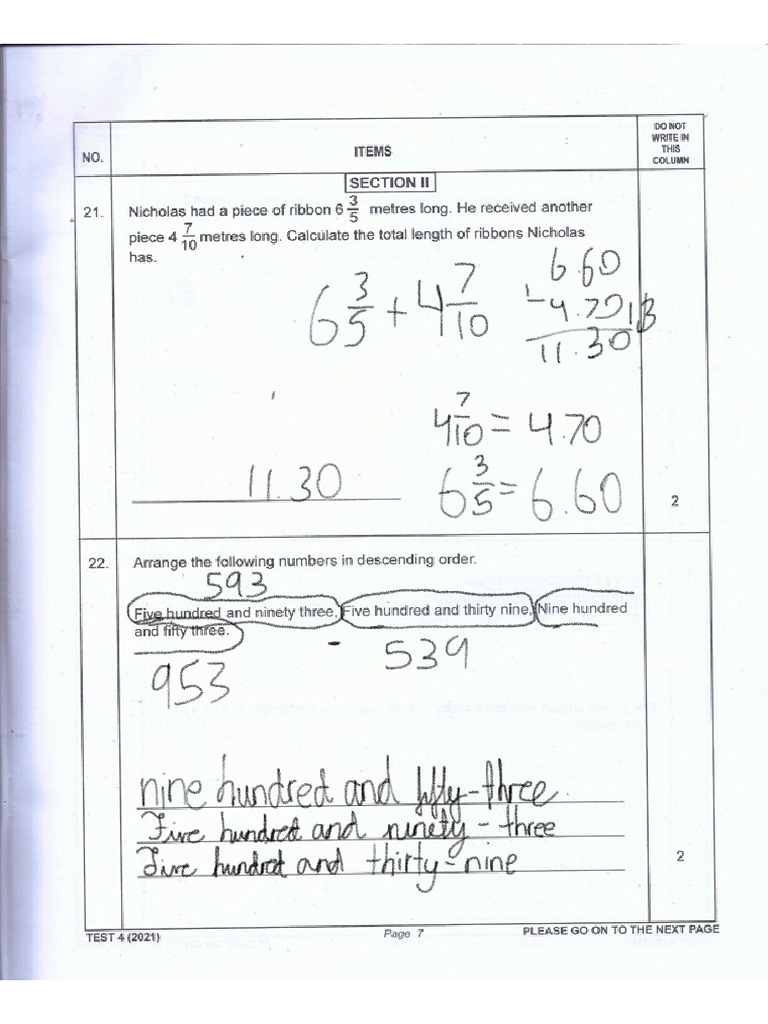 NO.
ITEMS
DO NOT
WRITE IN
THIS
COLUMN
SECTION II
21. Nicholas had a piece of ribbon 6 3/5 metres long. He received another
piece 4 7/10 metres long. Calculate the total length of ribbons Nicholas
has.
6 3/5 + 4 7/10
6.60
4.70
13
11.30
4 7/10 = 4.70
6 3/5 = 6.60
11.30
2
22. Arrange the following numbers in descending order.
593
Five hundred and ninety three, Five hundred and thirty nine, Nine hundred
and fifty three.
539
953
nine hundred and fifty-three.
Five hundred and ninety-three
Five hundred and thirty-nine
2
TEST 4 (2021)
Page 7
PLEASE GO ON TO THE NEXT PAGE